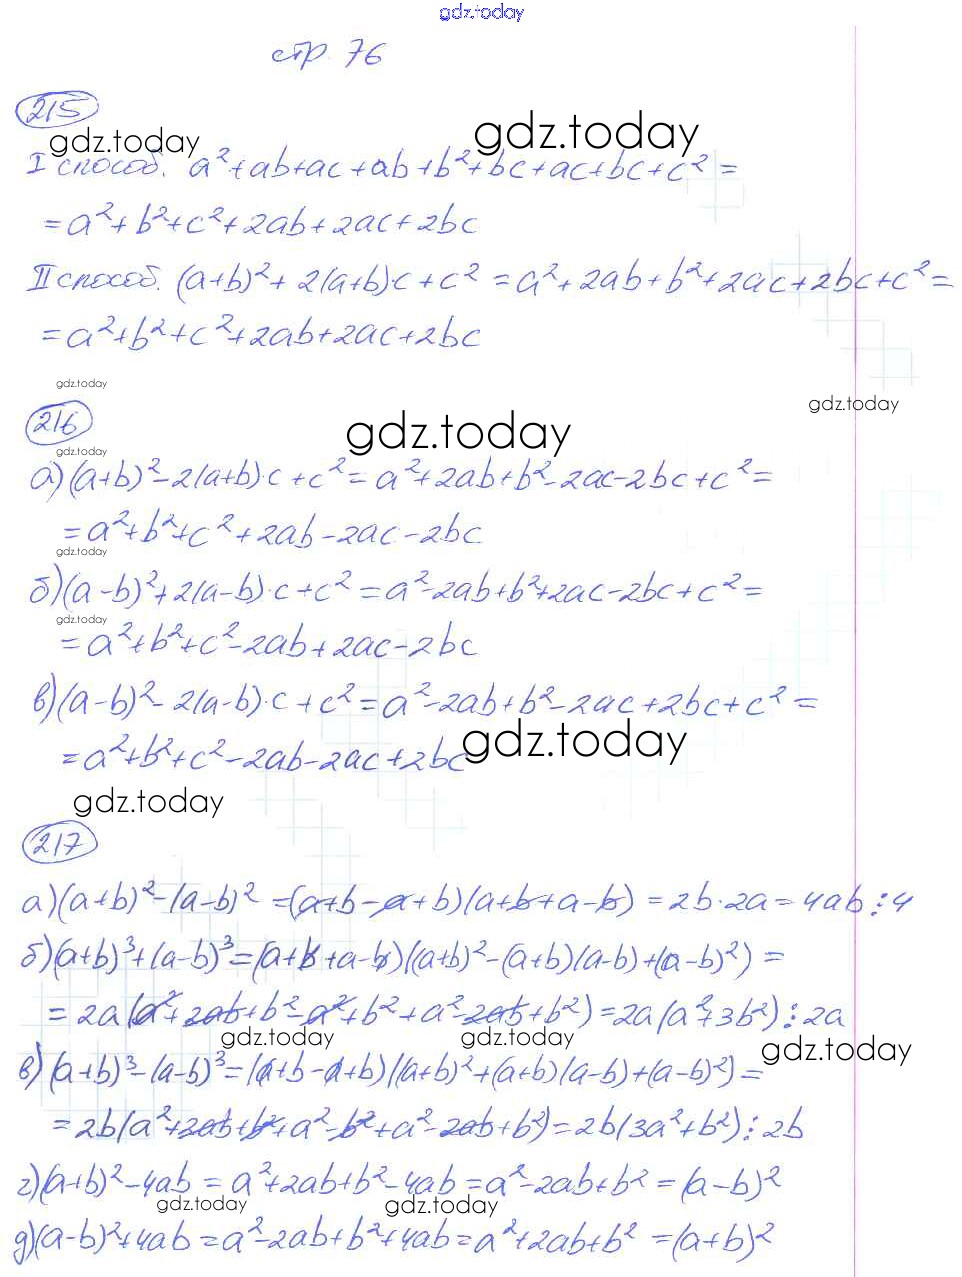 gdz.today
стр. 76
215
gdz.today
gdz.today
I способ. a²+ab+ac+ab+b²+bc+ac+bc+c²=
=a²+b²+c²+2ab+2ac+2bc
II способ. (a+b)²+2(a+b)c+c²=a²+2ab+b²+2ac+2bc+c²=
=a²+b²+c²+2ab+2ac+2bc
gdz.today
gdz.today
216
gdz.today
gdz.today
а)(a+b)²-2(a+b)·c+c²=a²+2ab+b²-2ac-2bc+c²=
=a²+b²+c²+2ab-2ac-2bc
gdz.today
б)(a-b)²+2(a-b)·c+c²=a²-2ab+b²+2ac-2bc+c²=
gdz.today
=a²+b²+c²-2ab+2ac-2bc
в)(a-b)²-2(a-b)·c+c²=a²-2ab+b²-2ac+2bc+c²=
gdz.today
=a²+b²+c²-2ab-2ac+2bc
gdz.today
217
а)(a+b)²-(a-b)²=(a+b-a+b)(a+b+a-b)=2b·2a=4ab⋮4
б)(a+b)³+(a-b)³=(a+b+a-b)((a+b)²-(a+b)(a-b)+(a-b)²)=
=2a(a²+2ab+b²-a²+b²+a²-2ab+b²)=2a(a²+3b²)⋮2a
gdz.today
gdz.today
gdz.today
в)(a+b)³-(a-b)³=(a+b-a+b)((a+b)²+(a+b)(a-b)+(a-b)²)=
=2b(a²+2ab+b²+a²-b²+a²-2ab+b²)=2b(3a²+b²)⋮2b
г)(a+b)²-4ab=a²+2ab+b²-4ab=a²-2ab+b²=(a-b)²
gdz.today
gdz.today
д)(a-b)²+4ab=a²-2ab+b²+4ab=a²+2ab+b²=(a+b)²